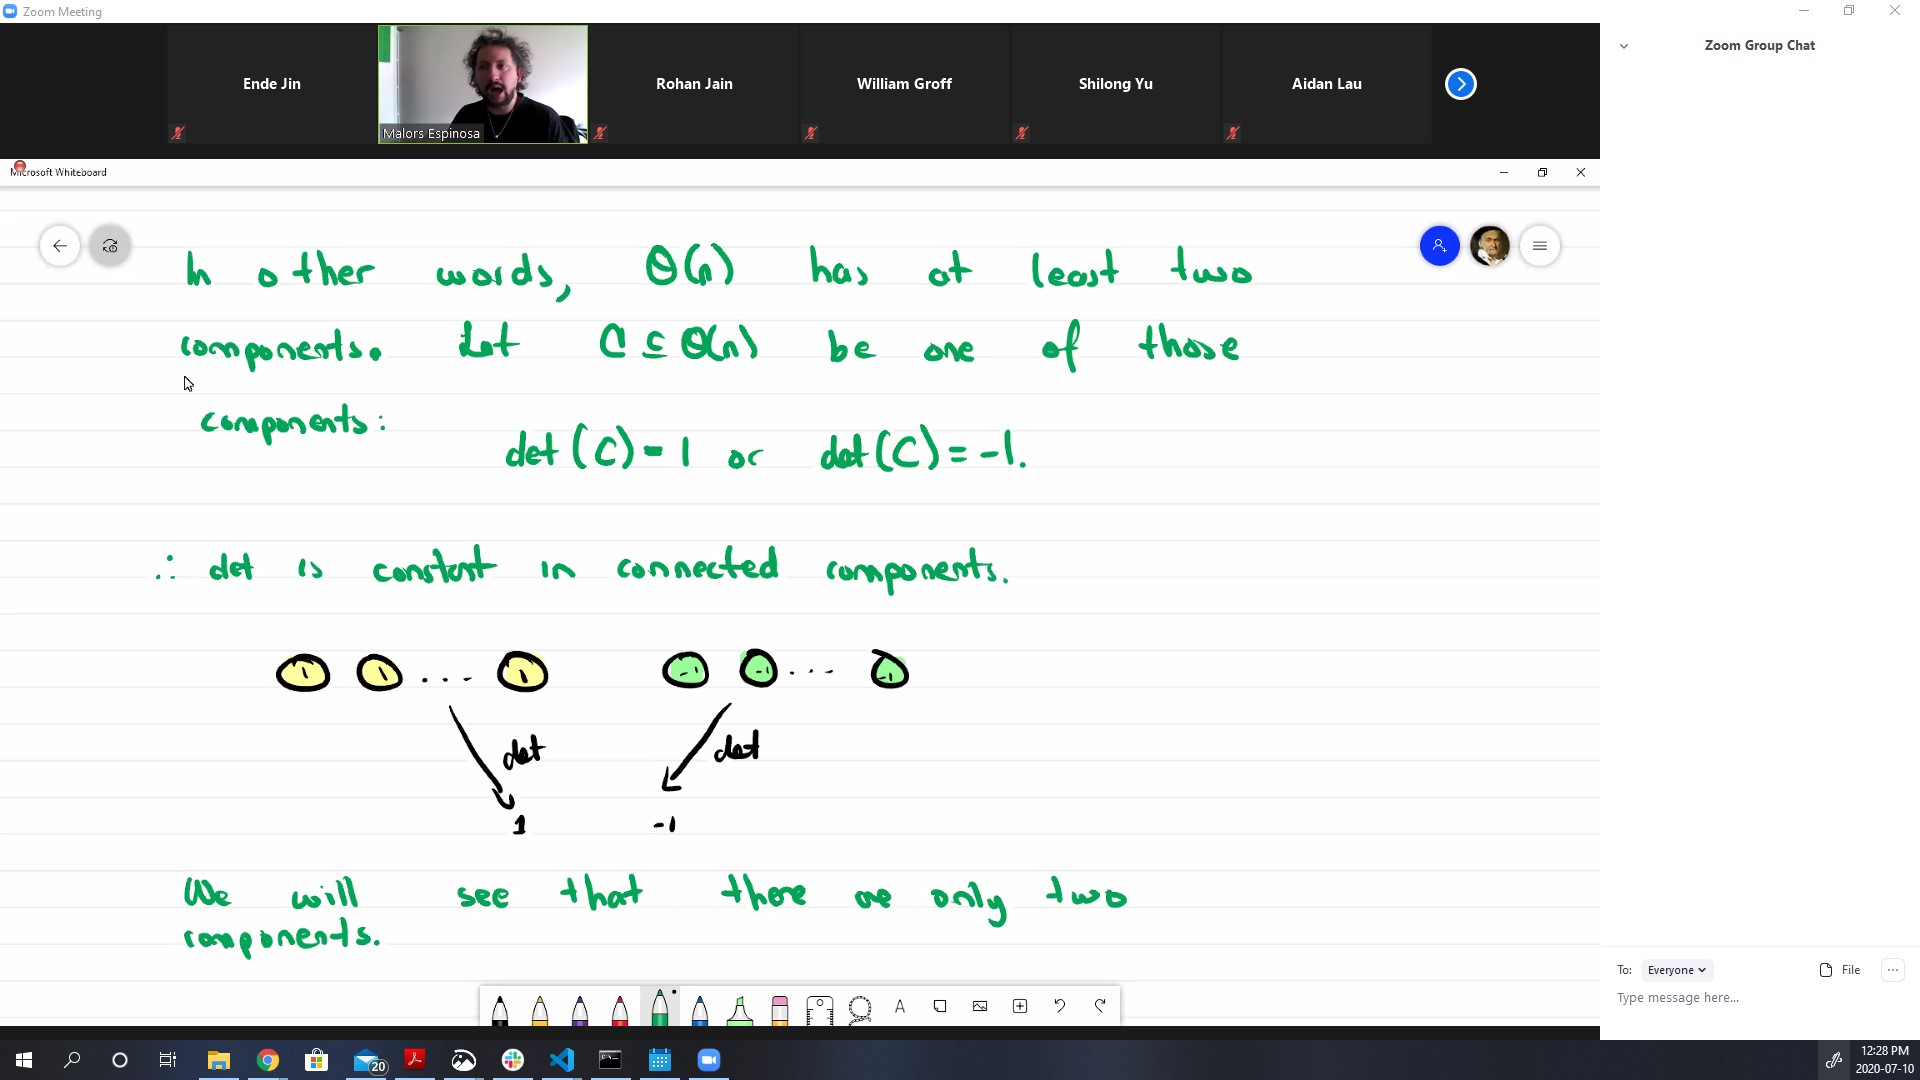 Zoom Meeting
Ende Jin
Malors Espinosa
Rohan Jain
William Groff
Shilong Yu
Aidan Lau
Zoom Group Chat
Microsoft Whiteboard
In other words, O(n) has at least two
components. Let C ⊆ O(n) be one of those
components:
det(C) = 1 or det(C) = -1.
∴ det is constant in connected components.
1 1 ... 1 -1 -1 ... -1
det det
1 -1
We will see that there are only two
components.
To: Everyone File
Type message here...
A
20
12:28 PM
2020-07-10